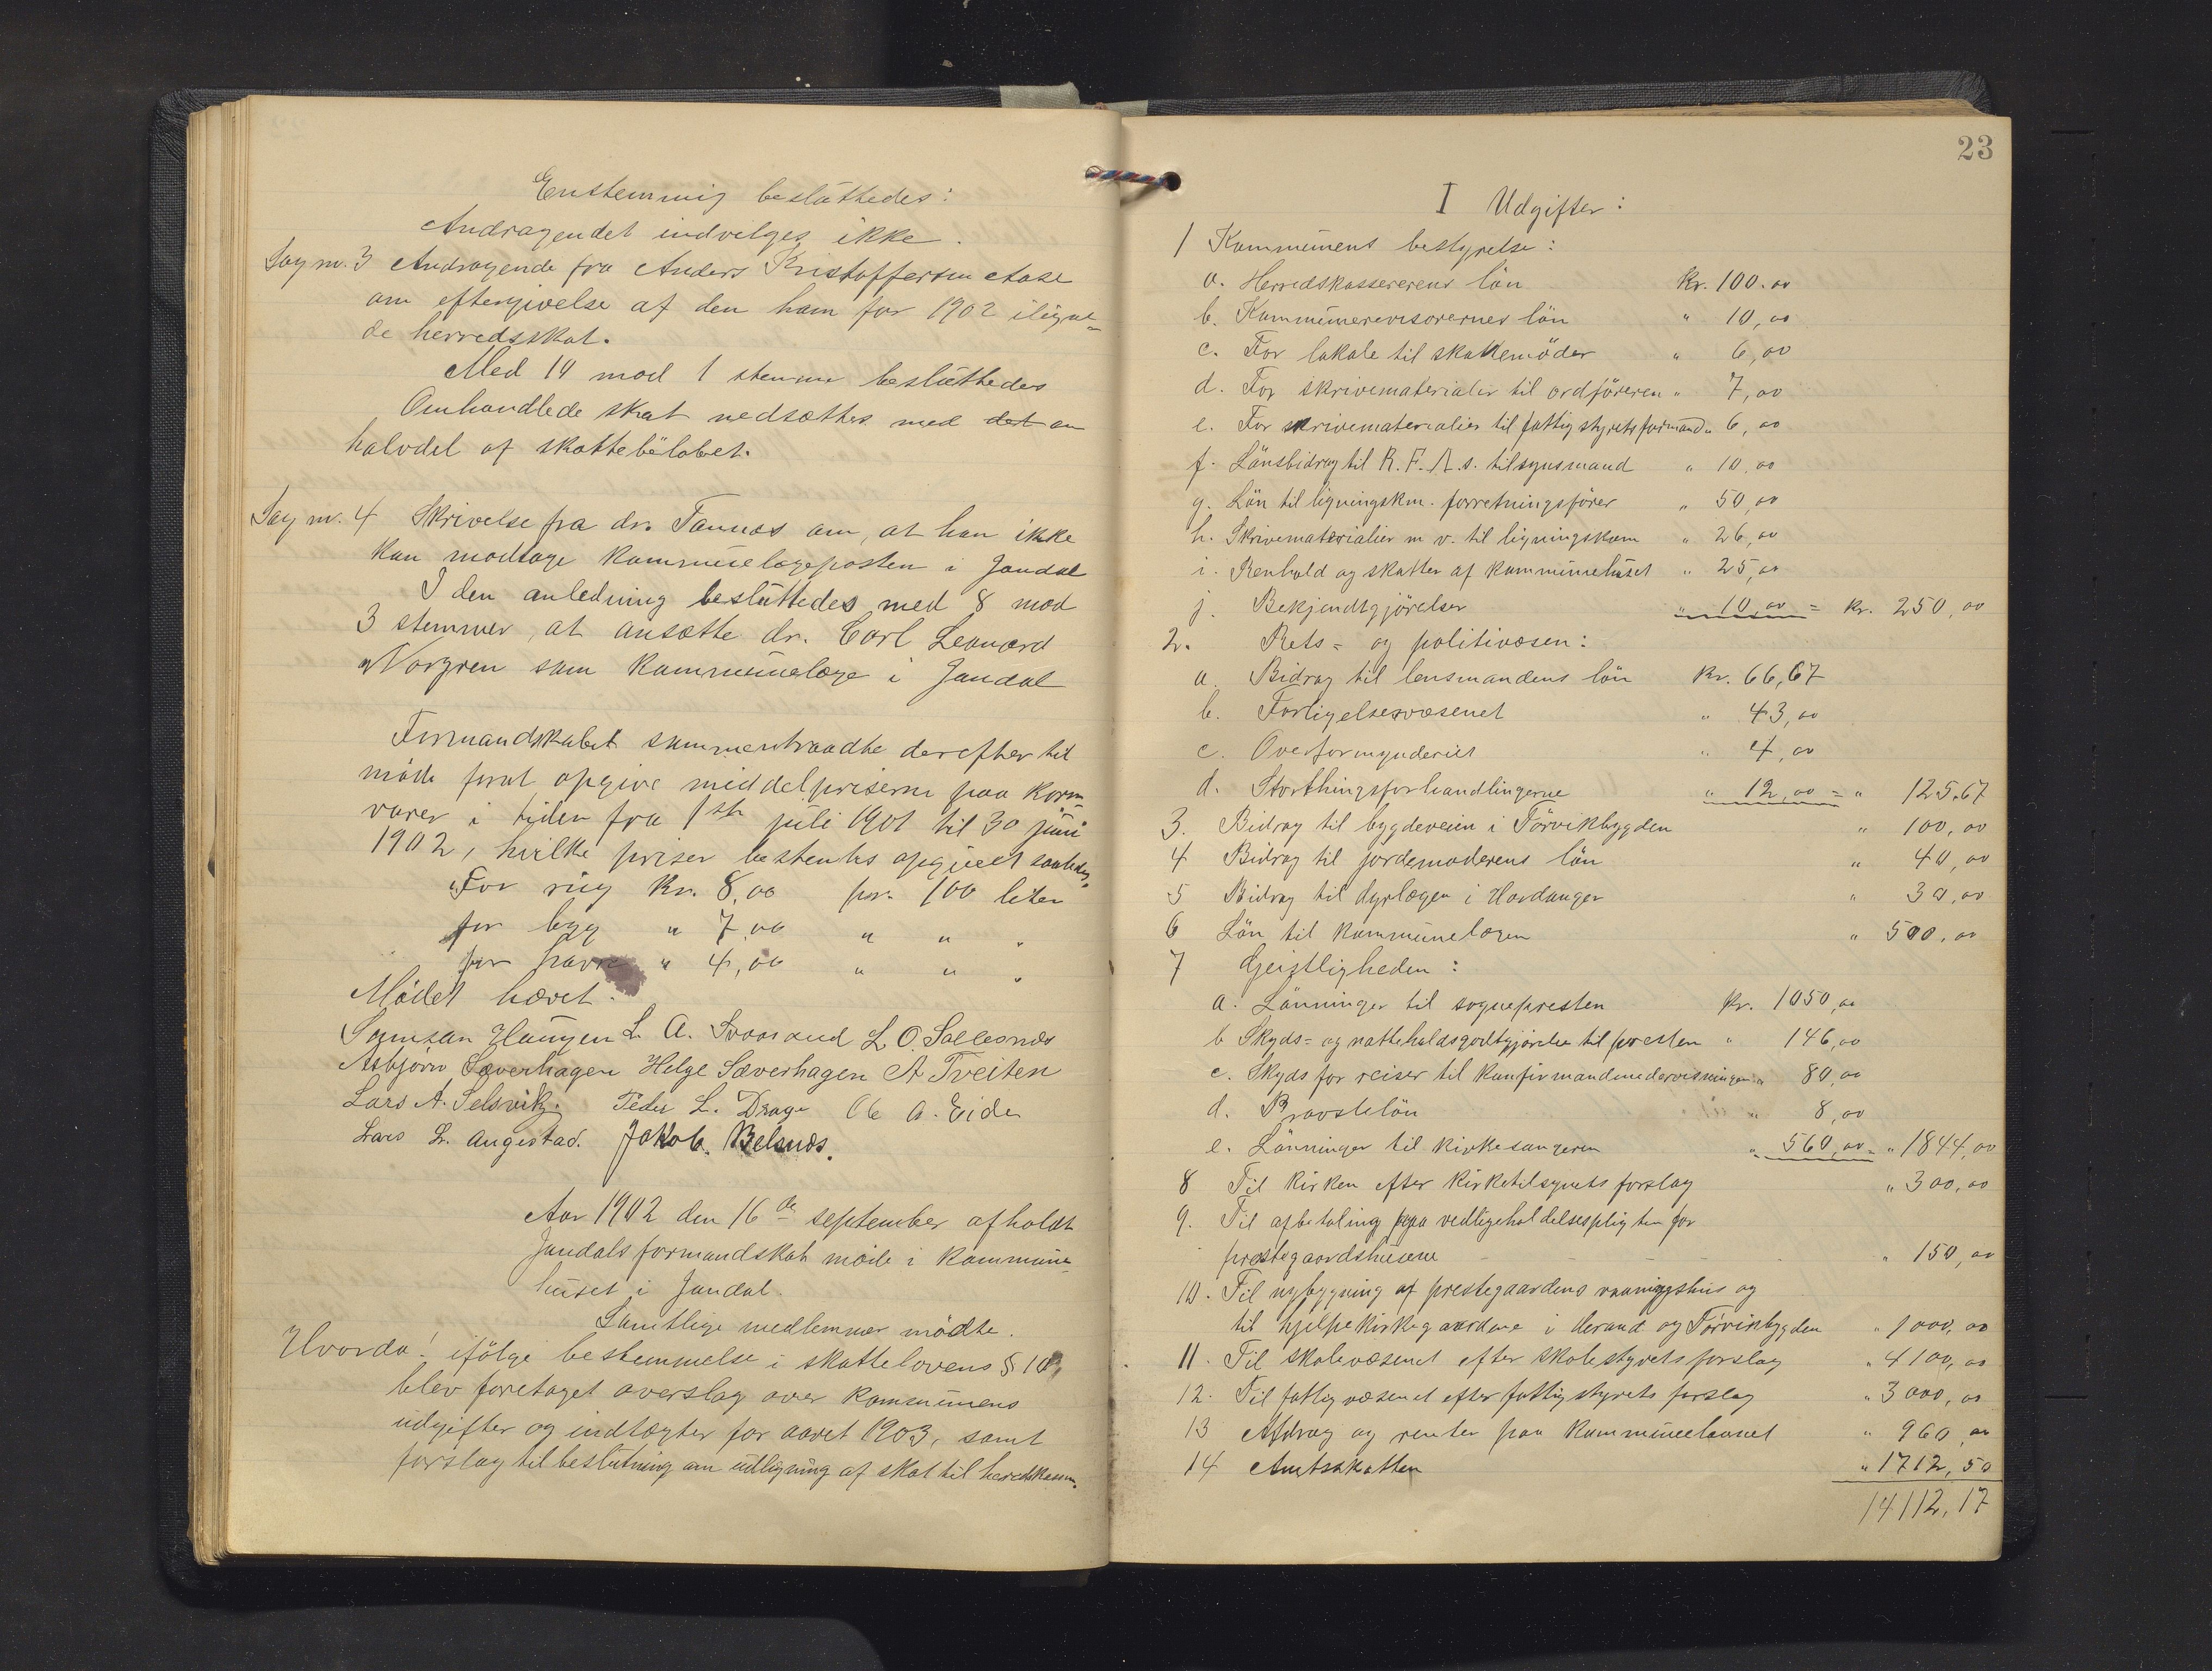 Enstemmig besluttedes:
Andragendet indvilges ikke.
Sag nr. 3 Andragende fra Anders Kristoffersen Aase
om eftergivelse af den ham for 1902 iligne=
de herredsskat.
Med 14 mod 1 stemme besluttedes
Omhandlede skat nedsættes med det en
halvdel af skattebeløbet.
Sag nr. 4 Skrivelse fra dr. Tannæs om, at han ikke
kan modtage kommunelægeposten i Jondal
I den anledning besluttedes med 8 mod
3 stemmer, at ansætte dr. Carl Leonard
Norgren som kommunelæge i Jondal
Formandskabet sammentraadte derefter til
møde forat opgive middelpriserne paa korn
varer i tiden fra 1ste juli 1901 til 30 juni
1902, hvilke priser bestemtes opgivet saaledes.
For rug Kr. 8,00 pr. 100 liter
for byg " 7,00 " " "
for havre " 4,00 " " "
Mødet hævet.
Samson Haugen L. A. Svaasand L O. Sallesnæs
Asbjørn Sæverhagen Helge Sæverhagen A Tveiten
Lars A. Selsvik Peder L. Drage Ole A. Eide
Lars L. Augestad. Jakob. Belsnæs.
Aar 1902 den 16de september afholdt
Jondals formandskab møde i kommune
huset i Jondal.
Samtlige medlemmer mødte.
Hvorda! ifølge bestemmelse i skattelovens § 10
blev foretaget overslag over kommunens
udgifter og indtægter for aaret 1903, samt
forslag til beslutning om udligning af skat til herredskassen.
23
I Udgifter:
1 Kommunens bestyrelse:
a. Herredskassererens løn Kr. 100.00
b. Kommunerevisorernes løn " 10,00
c. For lokale til skattemøder " 6,00
d. For skrivematerialier til ordføreren " 7,00
e. For skrivematerialier til fattigstyrets formand " 6,00
f. Lønsbidrag til R. F. A. s. tilsynsmand " 10,00
g. Løn til ligningskm. forretningsfører " 50,00
h. Skrivematerialier m v. til ligningskom " 26,00
i. Renhold og skatter af kommunehuset " 25,00
j. Bekjendtgjørelser " 10,00 = Kr. 250,00
2. Rets= og politivæsen:
a. Bidrag til lensmandens løn Kr. 66,67
b. Forligelsesvæsenet " 43,00
c. Overformynderiet " 4,00
d. Storthingsforhandlingerne " 12,00 = " 125,67
3. Bidrag til bygdeveien i Tørvikbygden " 100,00
4 Bidrag til jordemoderens løn " 40,00
5 Bidrag til dyrlægen i Hardanger " 30,00
6 Løn til kommunelægen " 500,00
7 Geistligheden:
a. Lønninger til sognepresten Kr. 1050,00
b Skyds= og natteholdsgodtgjørelse til presten " 146,00
c. Skyds for reiser til konfirmandundervisningen " 80,00
d. Provsteløn " 8,00
e. Lønninger til kirkesangeren " 560,00 = " 1844,00
8 Til kirken efter kirketilsynets forslag " 300,00
9. Til afbetaling paa vedligeholdelsespligten for
prestegaardshusene " 150,00
10. Til nybygning af prestegaardens vaaningshus og
til hjelpekirkegaardene i Herand og Tørvikbygden " 1000,00
11. Til skolevæsenet efter skolestyrets forslag " 4100,00
12. Til fattigvæsenet efter fattigstyrets forslag " 3000,00
13 Afdrag og renter paa kommunelaanet " 960,00
14 Amtsskatten " 1712,50
14112,17